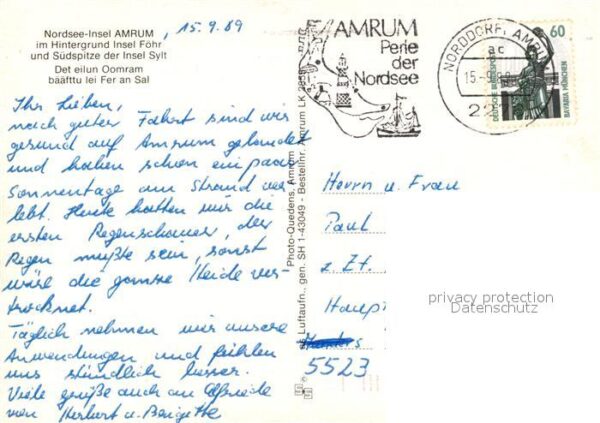 Nordsee-Insel AMRUM
im Hintergrund Insel Föhr
und Südspitze der Insel Sylt
Det eilun Oomram
baäfttu lei Fer an Sal
15.9.89
Ihr Lieben,
nach guter Fahrt sind wir
gesund auf Amrum gelandet
und haben schon ein paar
Sonnentage am Strand ver
lebt. Heute hatten wir die
ersten Regenschauer, der
Regen mußte sein, sonst
wäre die ganze Heide ver-
trocknet.
Täglich nehmen wir unsere
Anwendungen und fühlen
uns stündlich besser.
Viele Grüße auch an
von Herbert u. Brigitte
Photo-Quedens, Amrum
Luftaufn., gen. SH 1-43049 - Bestellnr. Amrum LK
AMRUM
Perle
der
Nordsee
NORDDORF, AMRUM
ac
15.-9.89
22
60
DEUTSCHE BUNDESPOST
BAVARIA MÜNCHEN
Herrn u. Frau
Paul
z. Zt.
Haupt
5523
privacy protection
Datenschutz